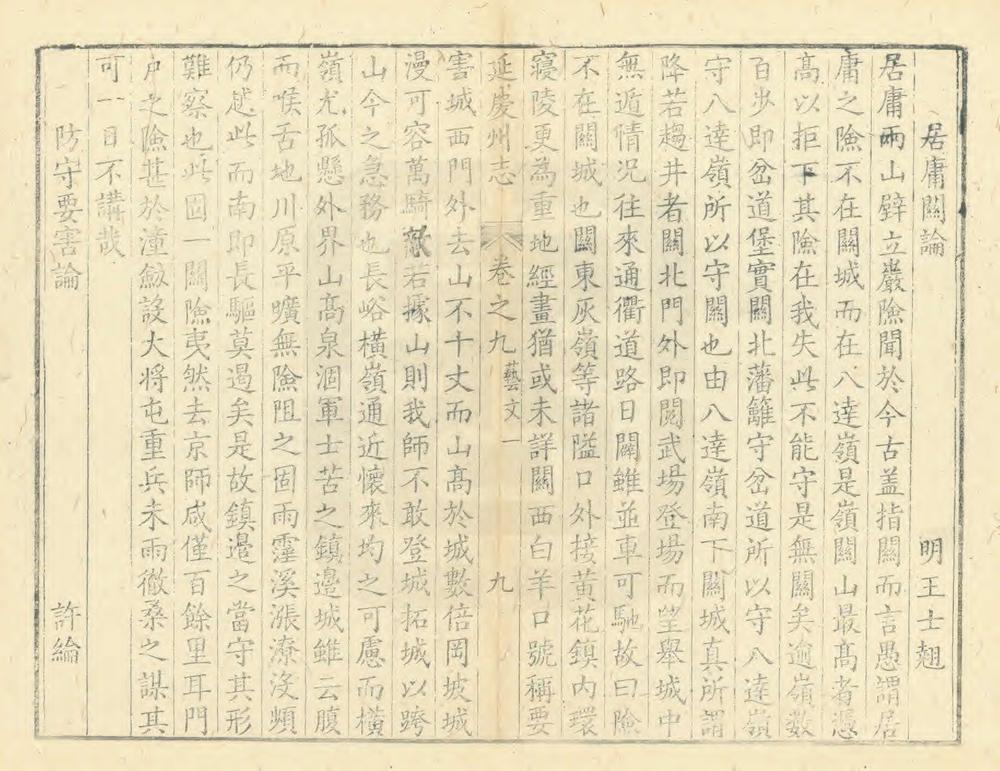 居庸關論 明王士翹
居庸兩山壁立巖險聞於今古盖指關而言愚謂居
庸之險不在關城而在八達嶺是嶺關山最高者憑
高以拒下其險在我失此不能守是無關矣逾嶺數
百步即岔道堡實關北藩籬守岔道所以守八達嶺
守八達嶺所以守關也由八達嶺南下關城真所謂
降若趨井者關北門外即閱武場登場而望舉城中
無遁情況往來通衢道路日闢雖並車可馳故曰險
不在關城也關東灰嶺等諸隘口外接黃花鎮內環
寢陵更為重地經畫猶或未詳關西白羊口號稱要
延慶州志 卷之九 藝文一 九
害城西門外去山不十丈而山高於城數倍岡坡城
漫可容萬騎敵若據山則我師不敢登城拓城以跨
山今之急務也長峪橫嶺通近懷來均之可慮而橫
嶺尤孤懸外界山高泉涸軍士苦之鎮邊城雖云腹
而喉舌地川原平曠無險阻之固雨霪溪漲潦沒頻
仍越此而南即長驅莫遏矣是故鎮邊之當守其形
難察也此固一關險夷然去京師咸僅百餘里耳門
戶之險甚於潼劍設大将屯重兵未雨徹桑之謀其
可一日不講哉
防守要害論 許綸